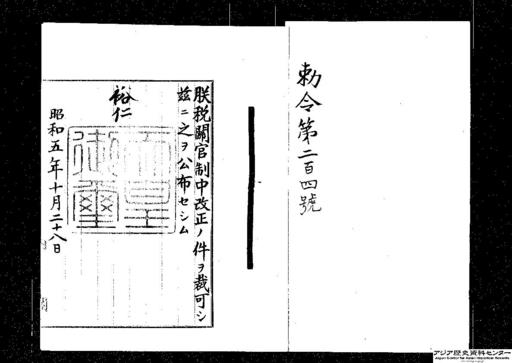 勅令第二百四號
朕税關官制中改正ノ件ヲ裁可シ
玆ニ之ヲ公布セシム
裕仁
天皇御璽
昭和五年十月二十八日
アジア歴史資料センター
Japan Center for Asian Historical Records